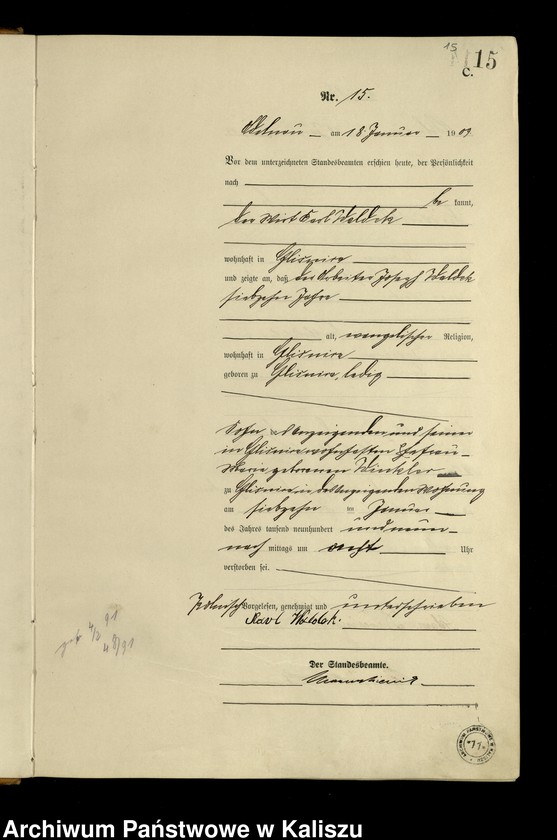 15
C. 15
Nr. 15.
Adelnau am 18. Januar 1909
Vor dem unterzeichneten Standesbeamten erschien heute, der Persönlichkeit
nach
be kannt,
der Wirt Karl Waldek
wohnhaft in Glisnica
und zeigte an, daß der Arbeiter Joseph Waldek
siebzehn Jahre
alt, evangelischer Religion,
wohnhaft in Glisnica
geboren zu Glisnica, ledig
Sohn des Anzeigenden und seiner
in Glisnica wohnhaften Ehefrau
Marie geborenen Winkler
zu Glisnica in des Anzeigenden Wohnung
am siebzehn ten Januar
des Jahres tausend neunhundert und neun
nach mittags um acht Uhr
verstorben sei.
Vorgelesen, genehmigt und unterschrieben
Karl Waldek.
Der Standesbeamte.
ARCHIWUM PAŃSTWOWE W KALISZU
-11-
Archiwum Państwowe w Kaliszu